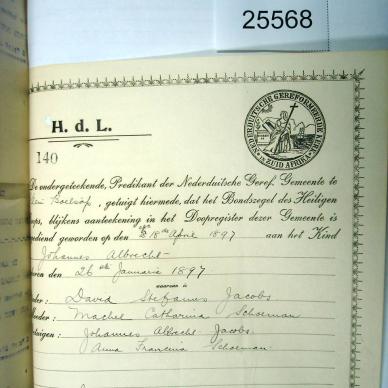 25568
NEDERDUITSCHE GEREFORMEERDE KERK
IN ZUID AFRIKA
H. d. L.
140
De ondergeteekende, Predikant der Nederduitsche Geref. Gemeente te
getuigt hiermede, dat het Bondszegel des Heiligen
ops, blijkens aanteekening in het Doopregister dezer Gemeente is
diend geworden op den 18 de April 1897 aan het Kind
Johannes Albrecht
ren den 26 ste Januarie 1897
waarvan is
der: David Stefanus Jacobs
eder: Machel Catharina Schoeman
tuigen: Johannes Albrecht Jacobs
Anna Francina Schoeman